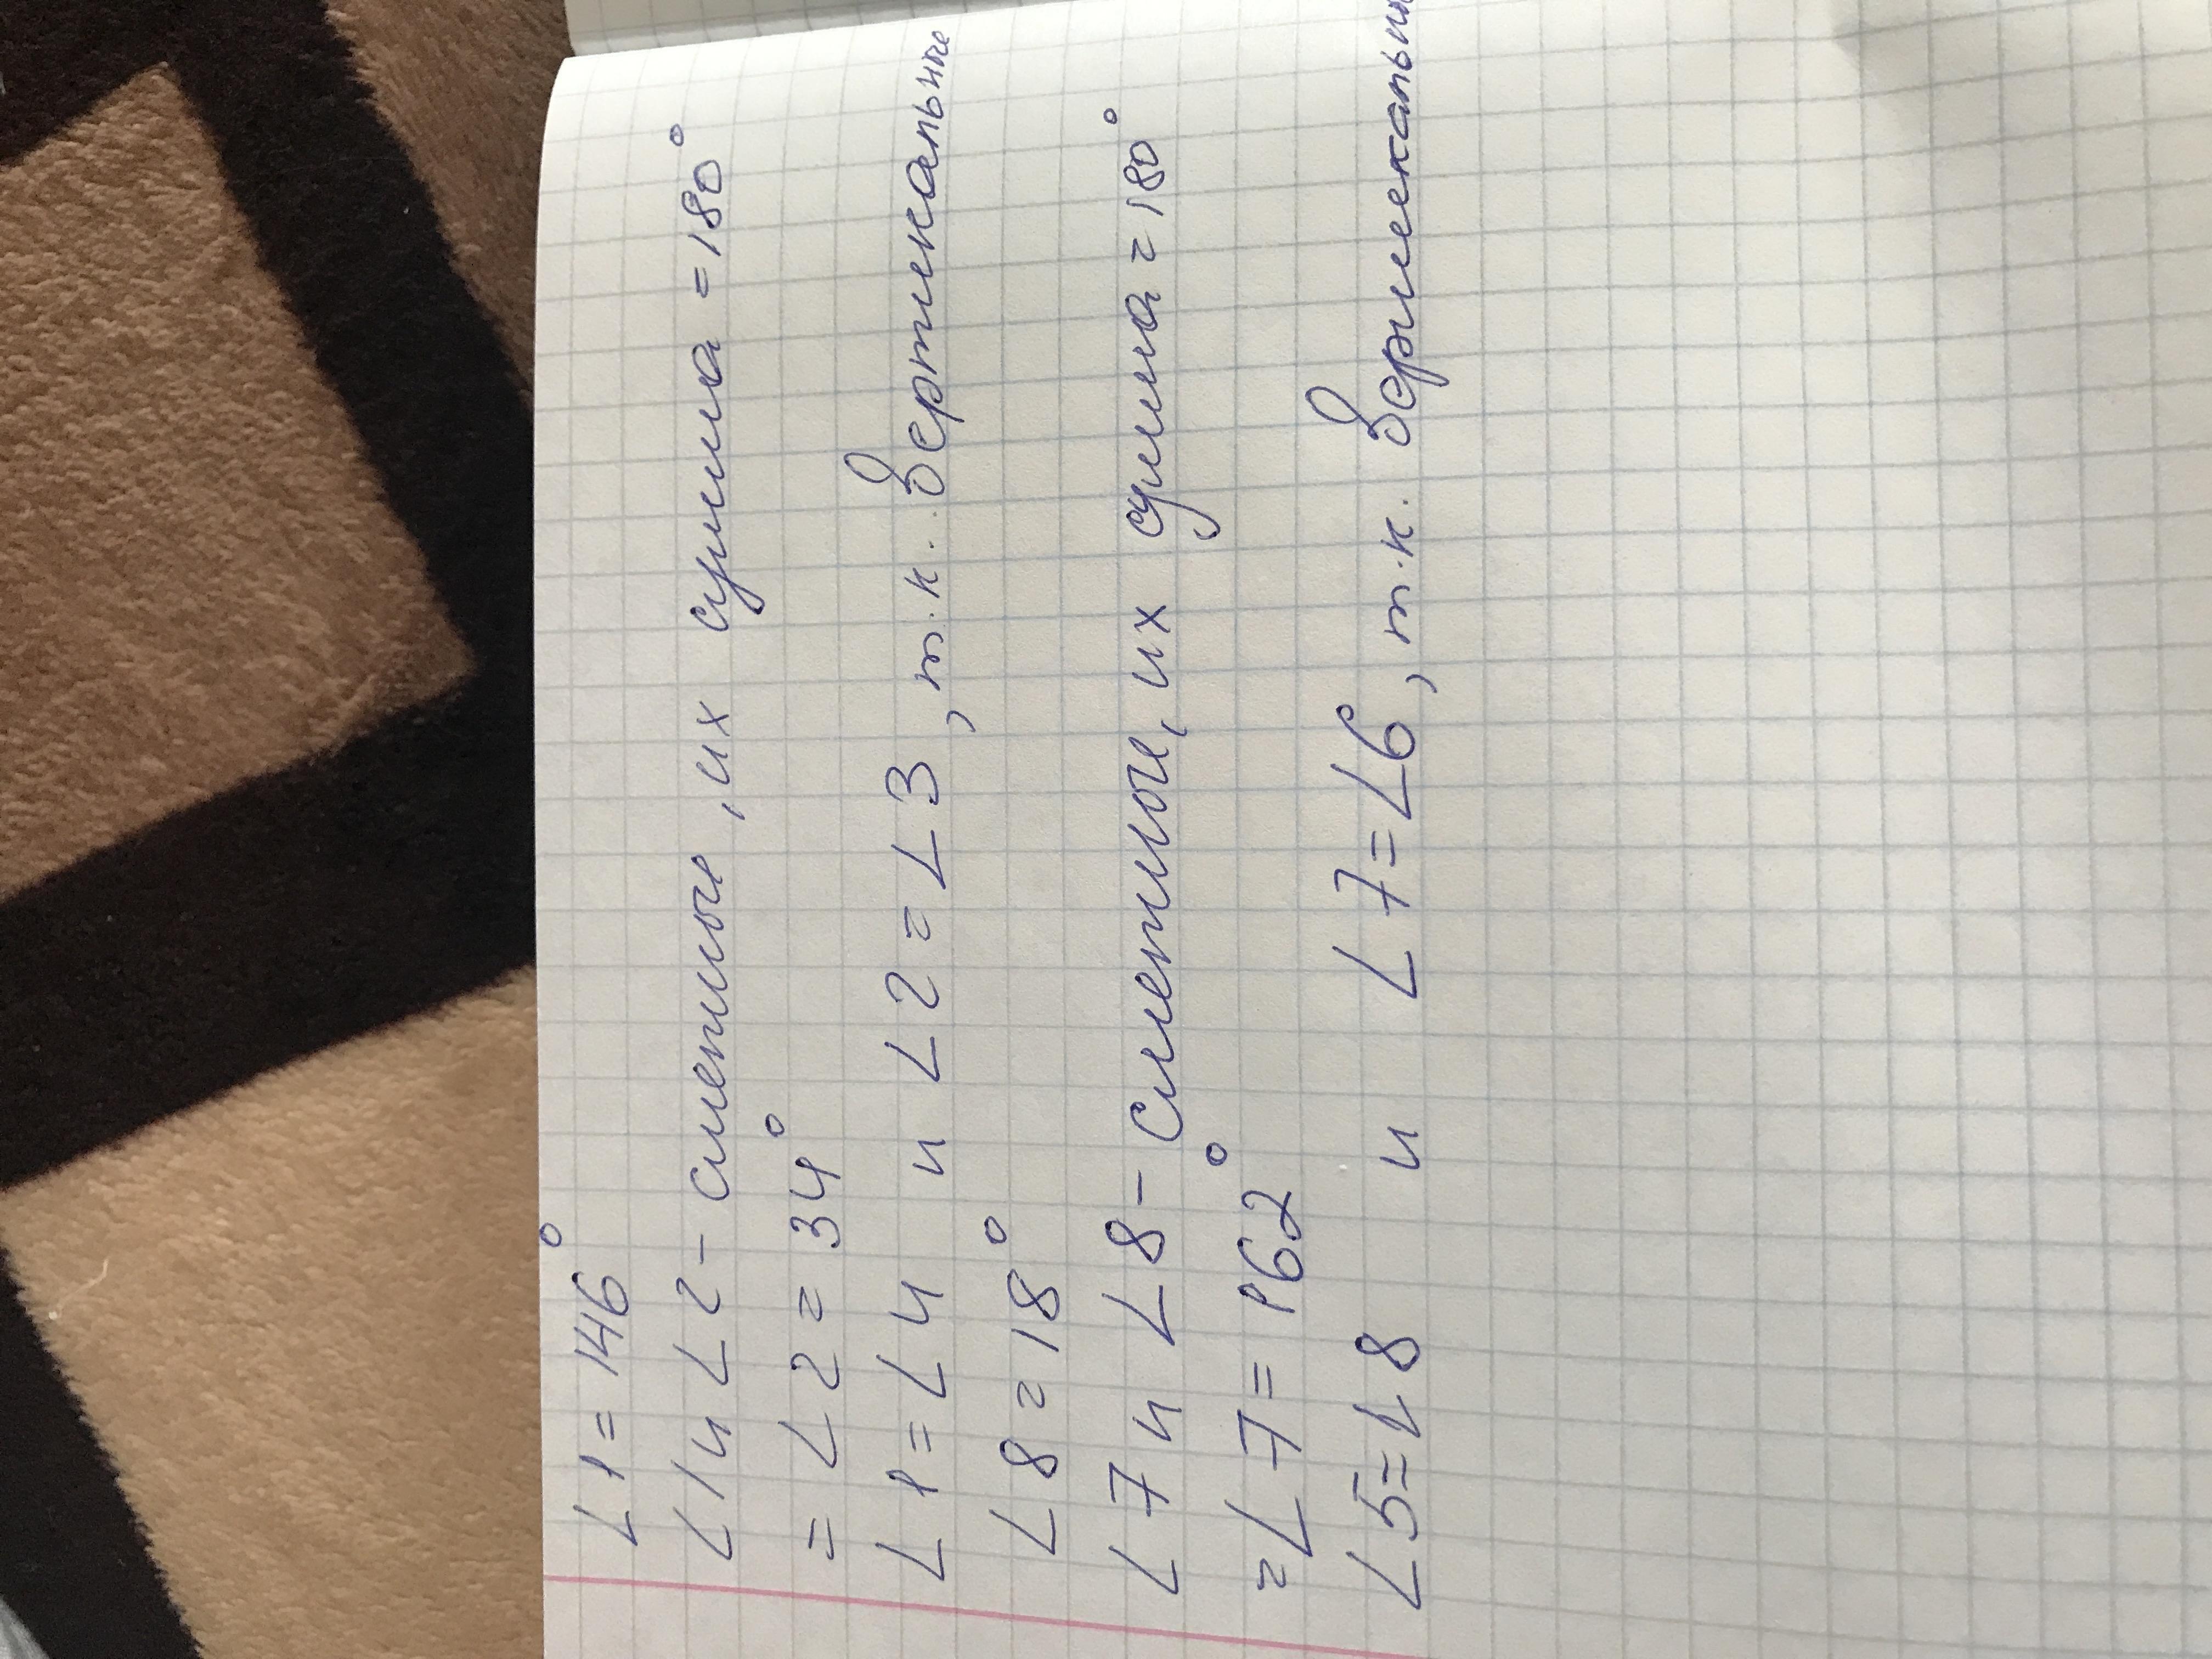 ∠1=146°
∠1 и ∠2 - смежные, их сумма = 180°
= ∠2 = 34°
∠1 = ∠4 и ∠2 = ∠3, т.к. вертикальные
∠8 = 18°
∠7 и ∠8 - смежные, их сумма = 180°
= ∠7 = 162°
∠5 = ∠8 и ∠7 = ∠6, т.к. вертикальны